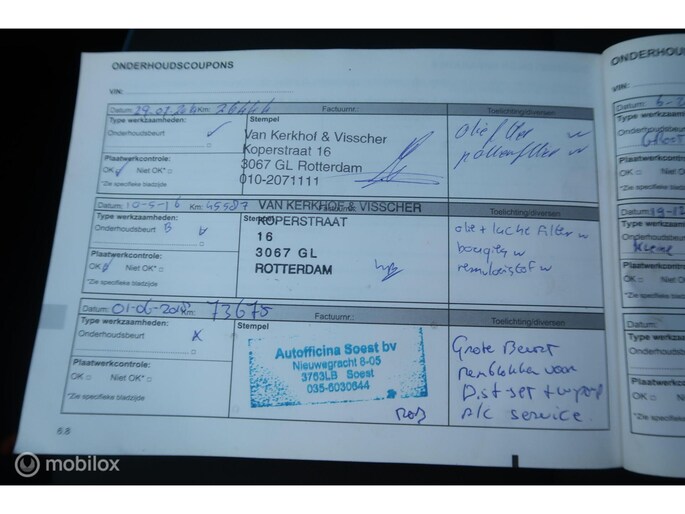 ONDERHOUDSCOUPONS
VIN:
Datum: 29-07-201 Km: 26444 Factuurnr.: Toelichting/diversen
Type werkzaamheden:
Onderhoudsbeurt
Plaatwerkcontrole:
OK Niet OK*
*Zie specifieke bladzijde
Stempel
Van Kerkhof & Visscher
Koperstraat 16
3067 GL Rotterdam
010-2071111
oliefilter
pollenfilter
Datum: 10-5-16 Km: 45587 Toelichting/diversen
Type werkzaamheden:
Onderhoudsbeurt B
Plaatwerkcontrole:
OK Niet OK*
*Zie specifieke bladzijde
VAN KERKHOF & VISSCHER
KOPERSTRAAT
16
3067 GL
ROTTERDAM
olie + lucht filter
bougies
remvloeistof
Datum: 01-06-2018 Km: 73675 Factuurnr.: Toelichting/diversen
Type werkzaamheden:
Onderhoudsbeurt x
Plaatwerkcontrole:
OK Niet OK*
*Zie specifieke bladzijde
Stempel
Autofficina Soest bv
Nieuwegracht 8-05
3763LB Soest
035-6030644
Rob
Grote Beurt
remblokken voor
Dist set + w pomp
A/C service.
6.6
ONDERHOU
Datum:
Type werkzaam
Onderhoudsbeurt
GROOT
Plaatwerkcontrole:
OK Niet OK*
*Zie specifieke blad
Datum: 19-12
Type werkzaamhe
Onderhoudsbeurt
Plaatwerkcontrole:
OK Niet OK*
*Zie specifieke bladz
Datum:
Type werkzaamhe
Onderhoudsbeurt
Plaatwerkcontrole:
OK Niet OK*
*Zie specifieke bladzijd
mobilox